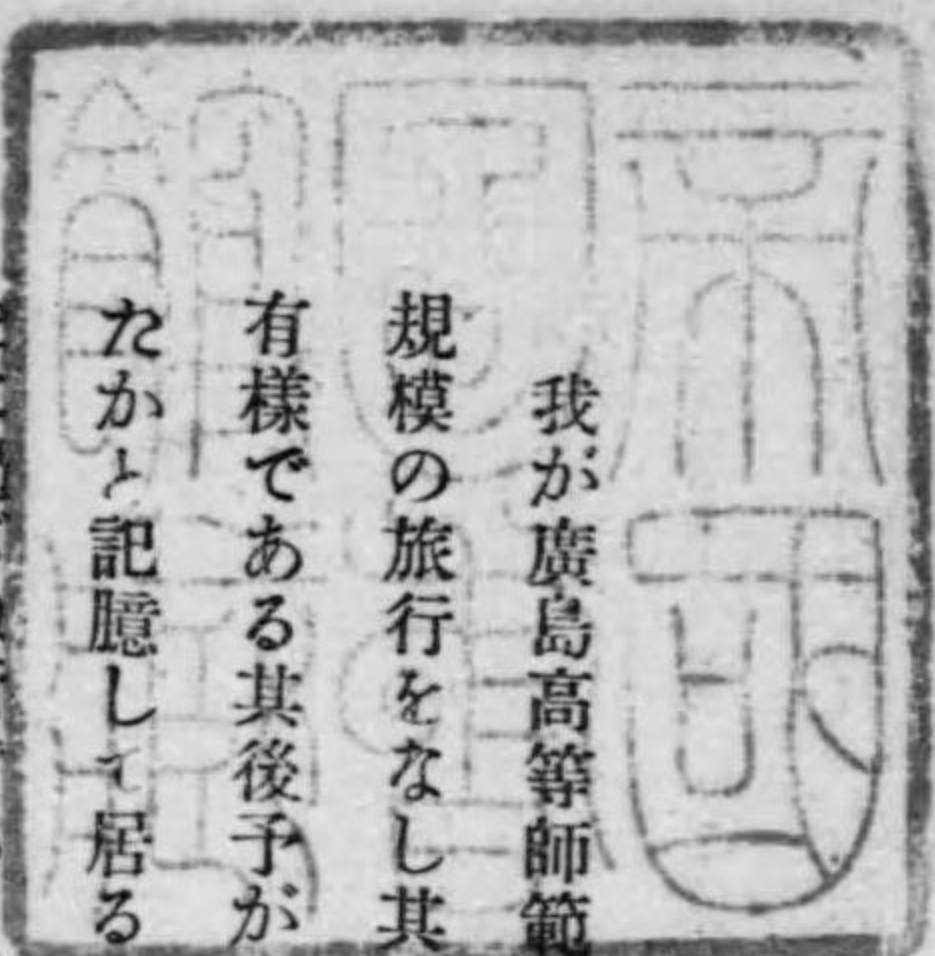 我が廣島高等師範
規模の旅行をなし其
有樣である其後予が
たかと記臆して居る